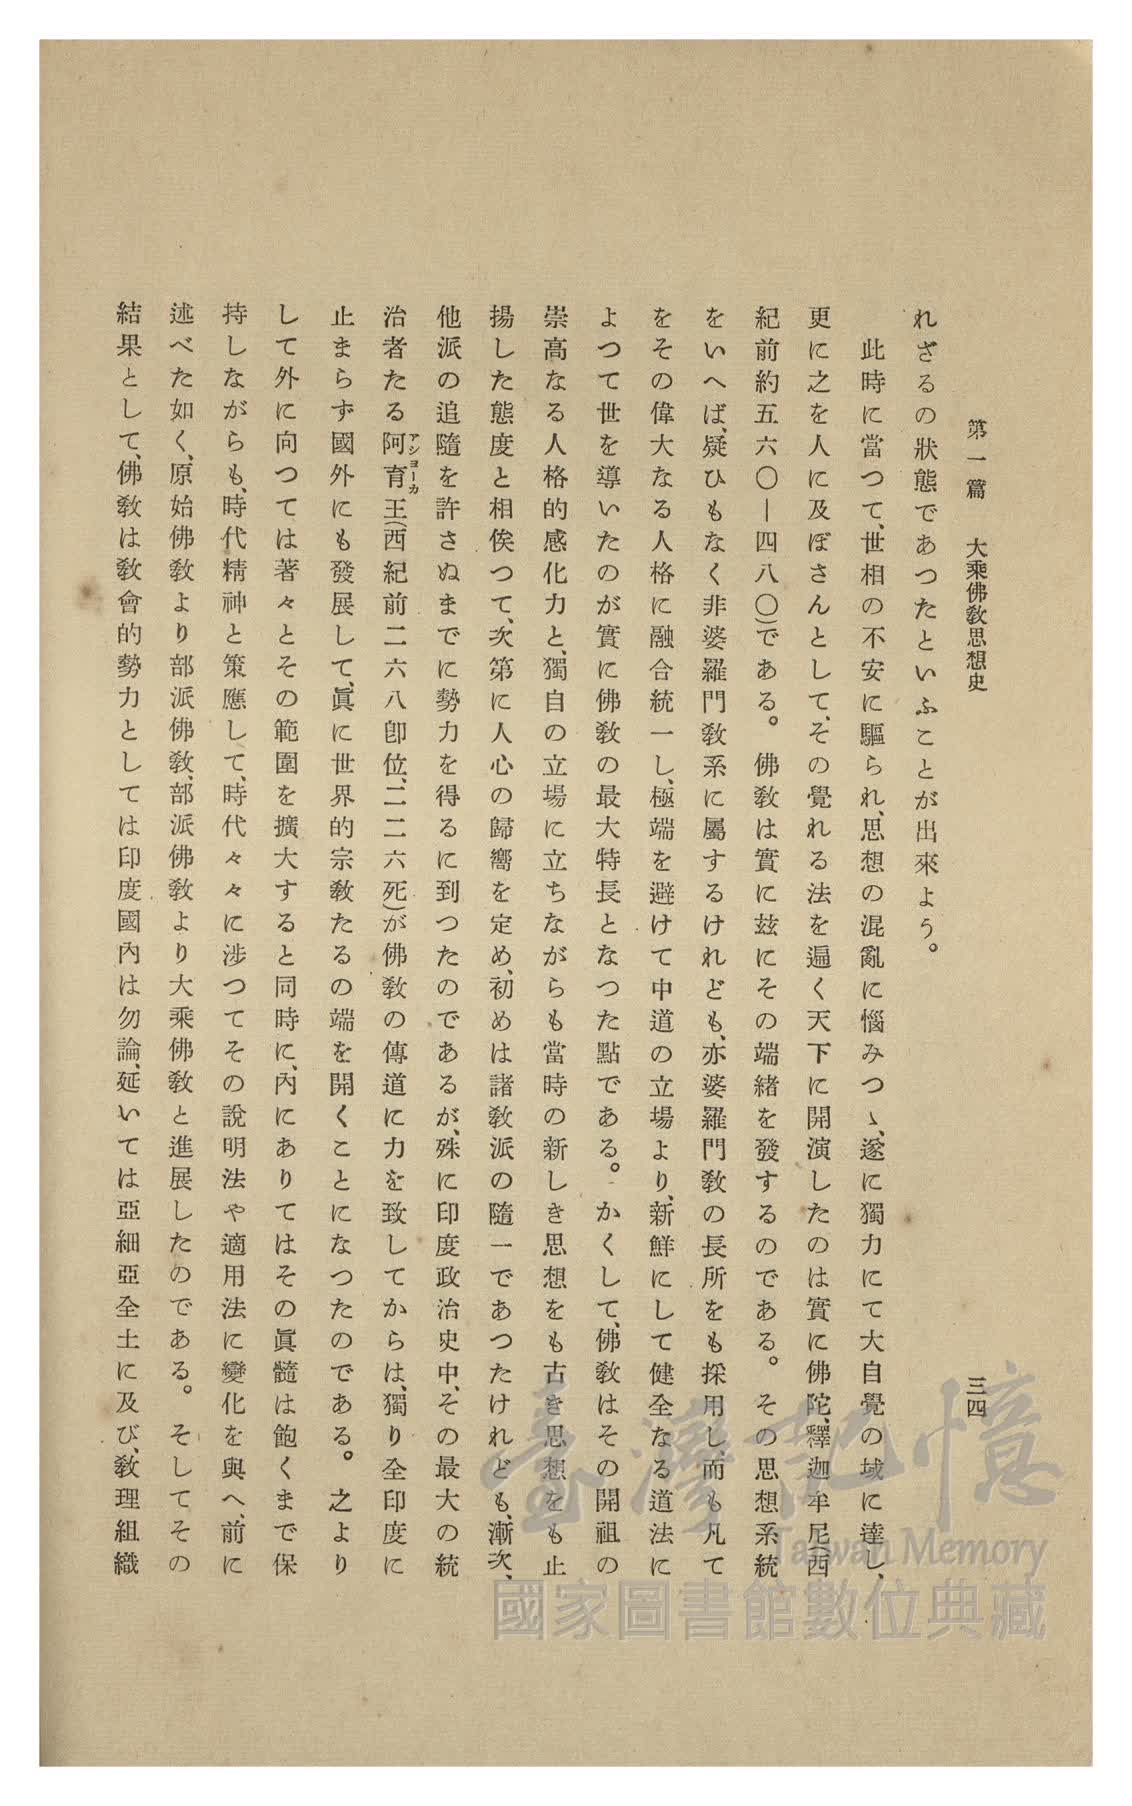 第一篇　大乘佛敎思想史　三四
れざるの狀態であつたといふことが出來よう。
此時に當つて、世相の不安に驅られ、思想の混亂に惱みつゝ、遂に獨力にて大自覺の域に達し、
更に之を人に及ぼさんとして、その覺れる法を遍く天下に開演したのは實に佛陀、釋迦牟尼(西
紀前約五六〇—四八〇)である。佛敎は實に玆にその端緖を發するのである。その思想系統
をいへば、疑ひもなく非婆羅門敎系に屬するけれども、亦婆羅門敎の長所をも採用し、而も凡て
をその偉大なる人格に融合統一し、極端を避けて中道の立場より、新鮮にして健全なる道法に
よつて世を導いたのが實に佛敎の最大特長となつた點である。かくして、佛敎はその開祖の
崇高なる人格的感化力と、獨自の立場に立ちながらも當時の新しき思想をも古き思想をも止
揚した態度と相俟つて、次第に人心の歸嚮を定め、初めは諸敎派の隨一であつたけれども、漸次、
他派の追隨を許さぬまでに勢力を得るに到つたのであるが、殊に印度政治史中、その最大の統
治者たる阿育王(西紀前二六八卽位、二二六死)が佛敎の傳道に力を致してからは、獨り全印度に
アショーカ
止まらず國外にも發展して、眞に世界的宗敎たるの端を開くことになつたのである。之より
して外に向つては著々とその範圍を擴大すると同時に、內にありてはその眞髓は飽くまで保
持しながらも、時代精神と策應して、時代々々に涉つてその說明法や適用法に變化を與へ、前に
述べた如く、原始佛敎より部派佛敎、部派佛敎より大乘佛敎と進展したのである。そしてその
結果として、佛敎は敎會的勢力としては印度國內は勿論、延いては亞細亞全土に及び、敎理組織
臺灣記憶
Taiwan Memory
國家圖書館數位典藏